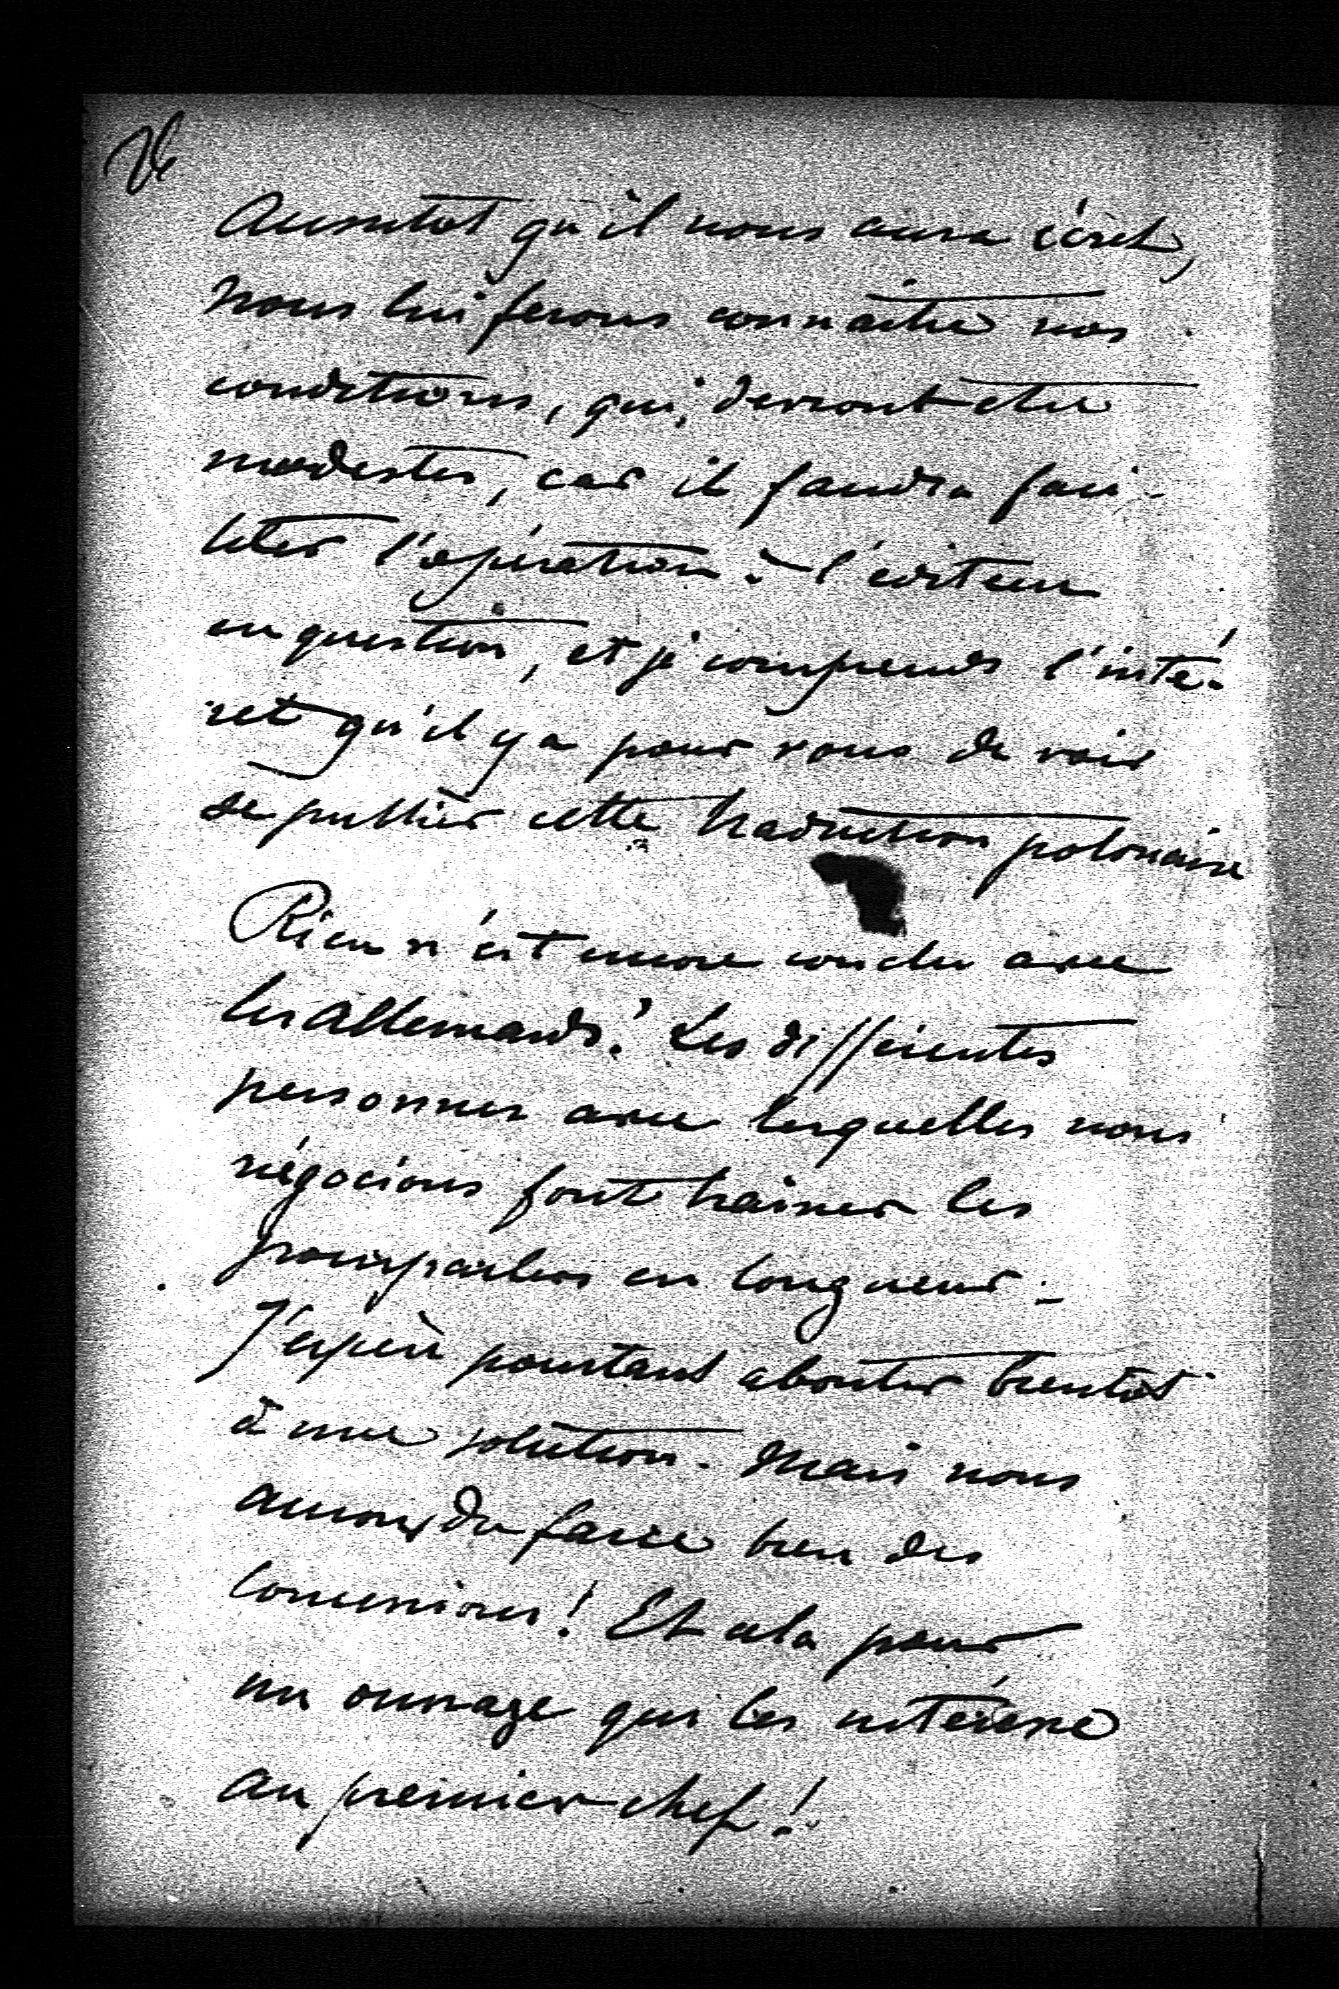 26
Aussitot qu'il nous aura écrit,
nous lui ferons connaître nos
conditions, qui devront être
modestes, car il faudra faci-
liter l'opération à l'éditeur
en question, et je comprends l'inté-
ret qu'il y a pour vous de voir
se publier cette traduction polonaise
Rien n'est encore conclu avec
les Allemands. Les différentes
personnes avec lesquelles nous
négocions font trainer les
pourparlers en longueur.
J'espère pourtant aboutir bientôt
à une solution. Mais nous
aurons du faire bien des
concessions! Et cela pour
un ouvrage qui les intéresse
au premier chef!